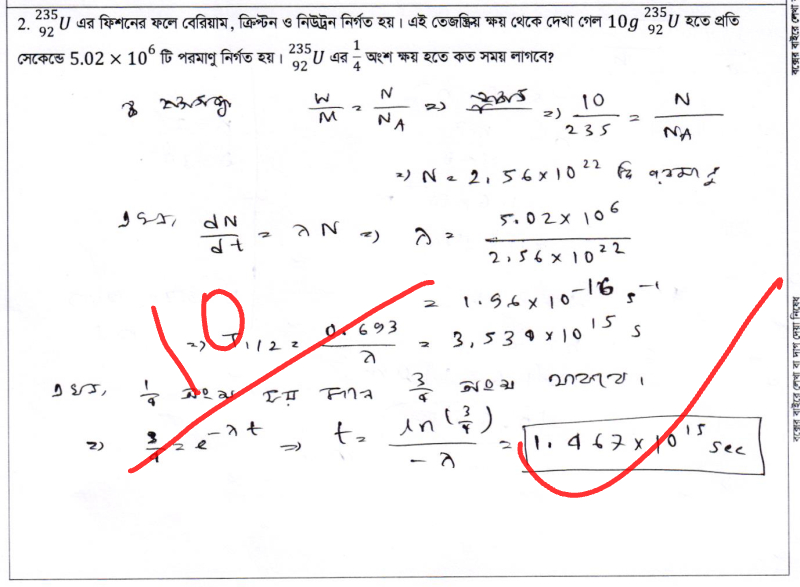 2. ²³⁵₉₂U এর ফিশনের ফলে বেরিয়াম, ক্রিপ্টন ও নিউট্রন নির্গত হয়। এই তেজস্ক্রিয় ক্ষয় থেকে দেখা গেল 10g ²³⁵₉₂U হতে প্রতি
সেকেন্ডে 5.02 × 10⁶ টি পরমাণু নির্গত হয়। ²³⁵₉₂U এর 1/4 অংশ ক্ষয় হতে কত সময় লাগবে?
W/M = N/N_A => => 10/235 = N/N_A
=> N = 2.56×10²² টি পরমাণু
এখন, dN/dt = λN => λ = 5.02×10⁶/2.56×10²²
= 1.96×10⁻¹⁶ s⁻¹
10
=> T1/2 = 0.693/λ = 3.539×10¹⁵ s
এখন, 1/4 অংশ ক্ষয় 3/4 অংশ থাকবে।
=> 3/4 = e^(-λt) => t = ln(3/4)/-λ = 1.467×10¹⁵ sec
বক্সের বাইরে লেখা
বক্সের বাইরে লেখা বা দাগ দেয়া নিষেধ